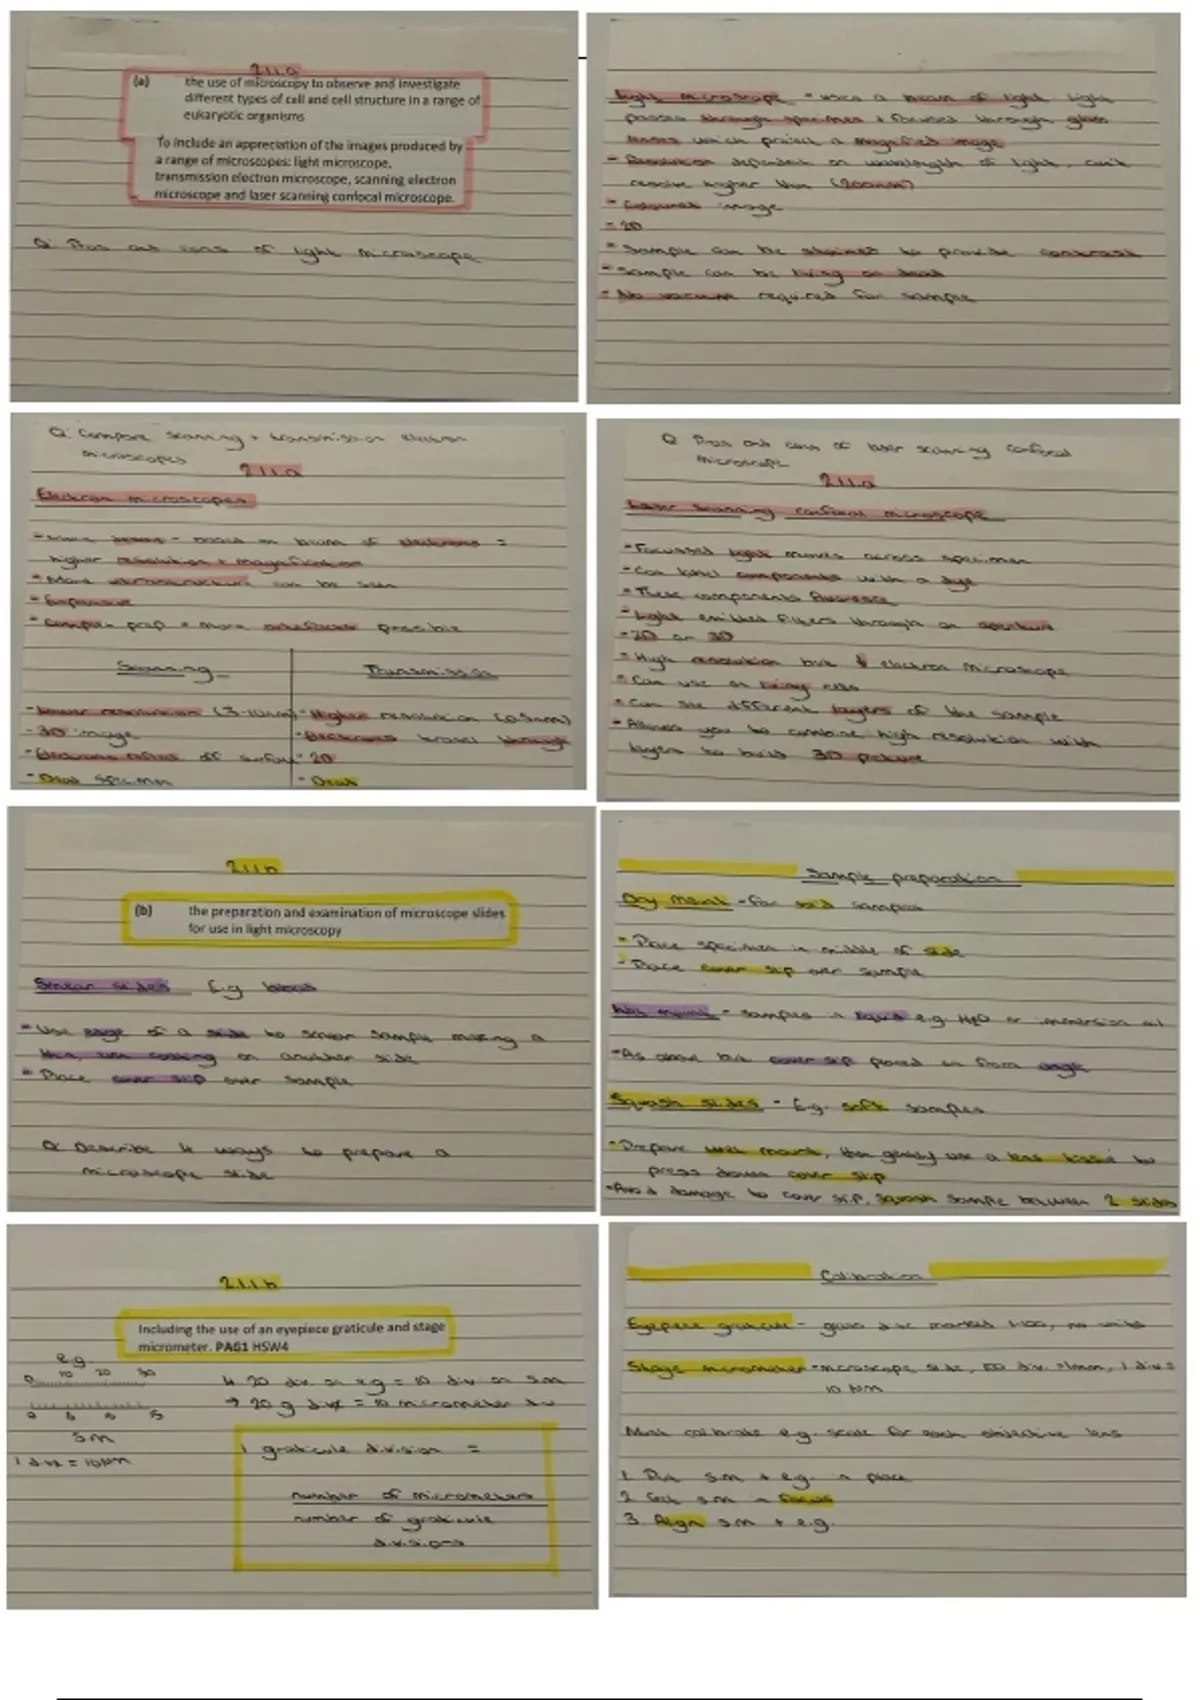 2.1.1.a
(a) the use of microscopy to observe and investigate
different types of cell and cell structure in a range of
eukaryotic organisms
To include an appreciation of the images produced by
a range of microscopes: light microscope,
transmission electron microscope, scanning electron
microscope and laser scanning confocal microscope.
Q: Pros and cons of light microscope
Light microscope - uses a beam of light. Light
passes through specimen + focused through glass
lenses which project a magnified image
- Resolution dependent on wavelength of light, can't
resolve higher than (200nm)
- Coloured image
- 2D
- Sample can be stained to provide contrast
- Sample can be living or dead
- No vacuum required for sample
Q: Compare scanning + transmission electron
microscopes
2.1.1.a
Electron microscopes
- beam of electrons =
higher resolution + magnification
- More ultrastructure can be seen
- Expensive
- Complex prep = more artefacts possible
Scanning
- Lower resolution (3-10nm)
- 3D image
- Electrons reflect off surface
- Dead specimen
Transmission
- Higher resolution (0.5nm)
- Electrons travel through
- 2D
- Dead
Q Pros and cons of laser scanning confocal
microscope
2.1.1.a
Laser scanning confocal microscope
- Focussed light moves across specimen
- Can label components with a dye
- These components fluoresce
- Light emitted filters through an aperture
- 2D or 3D
- High resolution but ↓ electron microscope
- Can use on living cells
- Can see different layers of the sample
- Allows you to combine high resolution with
layers to build 3D picture
2.1.1.b
(b) the preparation and examination of microscope slides
for use in light microscopy
Smear slides E.g blood
- Use edge of a slide to smear sample making a
thin, even coating on another slide
- Place cover slip over sample
Q: Describe 4 ways to prepare a
microscope slide
Sample preparation
Dry Mount - for solid samples
- Place specimen in middle of slide
- Place cover slip over sample
Wet mount - samples in liquid e.g. H2O or immersion oil
- As above but cover slip placed on from angle
Squash slides - E.g. soft samples
- Prepare wet mount, then gently use a lens tissue to
press down cover slip
- Avoid damage to cover slip, squash sample between 2 slides
2.1.1.b
Including the use of an eyepiece graticule and stage
micrometer. PAG1 HSW4
e.g.
0 10 20 30
0 5 10 15
s.m
1 div = 10µm
↳ 20 div. on e.g = 10 div on s.m
→ 20 g div = 10 micrometer div
1 graticule division =
number of micrometers
number of graticule
divisions
Calibration
Eyepiece graticule - glass disc marked 1-100, no units
Stage micrometer - microscope slide, 100 div. = 1mm, 1 div =
10 µm
Must calibrate e.g. scale for each objective lens
1. Put s.m + e.g. in place
2. Get s.m in focus
3. Align s.m + e.g.